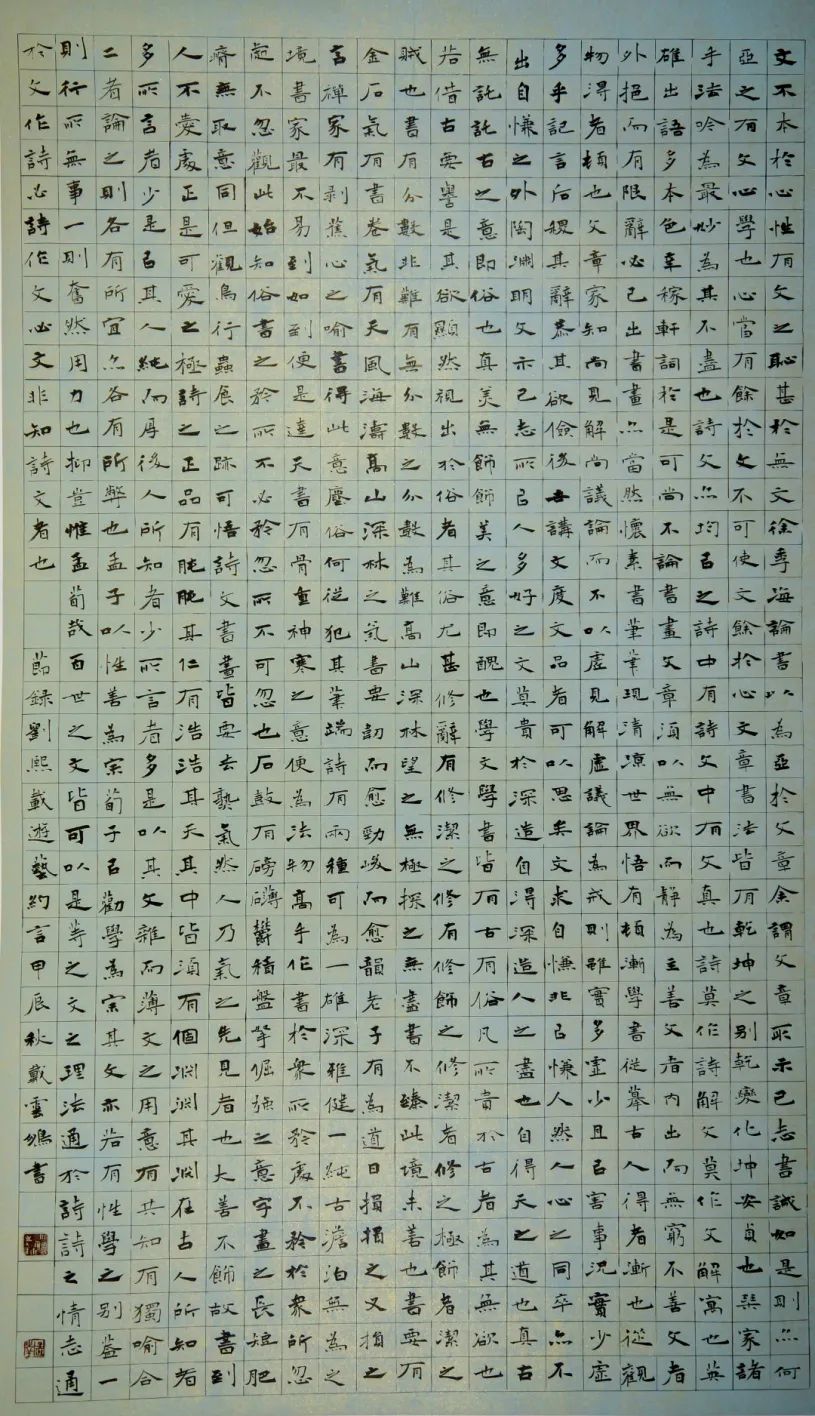 文不本於心性有文之恥甚於無文徐季海論書以為亞於文章余謂文章取示己志書誠如是則亦何
亞之有文心學也心當有餘於文不可使文餘於心文章書法皆有乾坤之別乾變化坤安貞也巽家諸
乎法吟為最妙為其不盡也詩文亦均有之詩中有詩文中有文真也詩莫作詩解文莫作文解寓也莫
確出語多本色辛稼軒詞於是可尚不論書畫文章須以無欲而靜為主善文者內出而無窮不善文者
外挹而有限辭必己出書畫亦當然懷素筆筆現清涼世界悟有頓漸學書從摹古人得者漸也從觀
物得者頓也文章家知尚見解尚議論而不以虛見解虛議論為戒則雖實多虛少且有害事況實少虛
多乎記言后稷其辭恭其欲儉後世講文度文品者可以思矣文求自慊非己慊人然人心之同卒亦不
出自慊之外陶淵明文示己志而已人多好之文莫貴於深造自得深造人之盡也自得天之道也真古
無託託古之意即俗也真美無飾飾美之意即醜也學文學書皆有古有俗凡所貴於古者為其無欲也
若借古要譽是其欲顯然視出於俗者其俗尤甚修辭有修潔之修有修飾之修潔者修之極飾者潔之
賊也書有分數非難有無分數之分數為難高山深林望之無極探之無盡書不臻此境未善也書要有
金石氣有書卷氣有天風海濤高山深林之氣書要韌而愈勁峻而愈韻老子有為道日損損之又損之
言禪家有剝蕉心之喻書得此意塵俗何從犯其筆端詩有兩種可為一雄深雅健一純古澹泊無為之
境書家最不易到如到便是達天書有骨重神寒之意便為法物高手作書於眾所矜處不矜於眾所忽
處不忽觀此始知俗書之矜所不必矜忽所不可忽也石鼓有磅礴鬱積盤拏倔強之意字畫之長短肥
瘠無取意同但觀鳥行蟲展之跡可悟詩文書畫皆要去熟氣然人乃氣之先見者也大善不飾故書到
人不愛處正是可愛之極詩之正品有肫肫其仁有浩浩其天其中皆須有個淵淵其淵在古人所知者
多所言者少是以其人純而厚後人所知者少所言者多是以其文雜而薄文之用意有共知有獨喻合
二者論之則各有所宜亦各有所弊也孟子以性善為宗荀子以勸學為宗其文亦若有性學之別蓋一
則行所無事一則奮然用力也抑豈惟孟荀哉百世之文皆可以是等之文之理法通於詩詩之情志通
於文作詩必詩作文必文非知詩文者也 節錄劉熙載遊藝約言甲辰秋戴雲鳩書